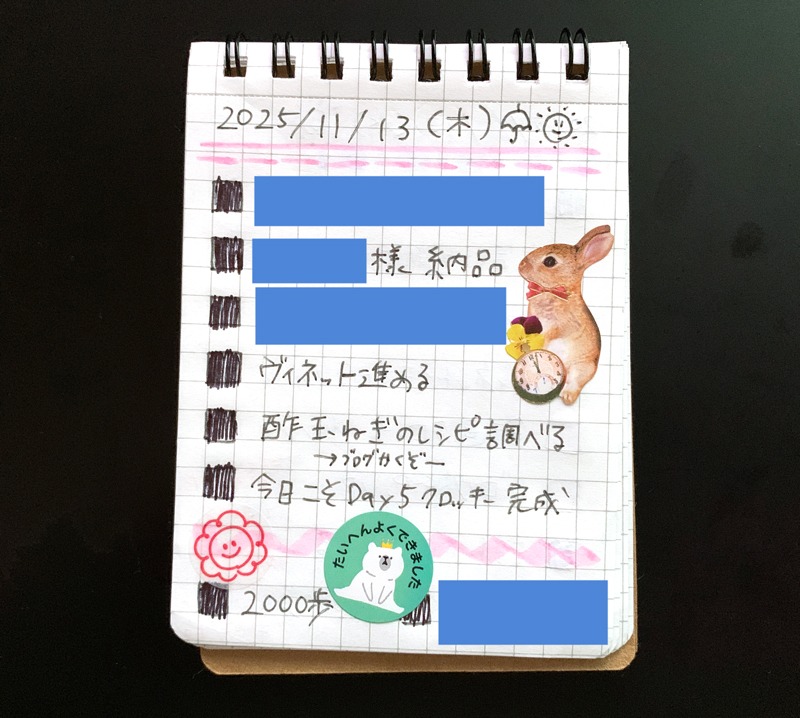 2025/11/13(木)
様 納品
ヴィネット進める
酢玉ねぎのレシピ調べる
→ブログかくぞー
今日こそDay5クロッキー完成
たいへんよくできました
2000歩